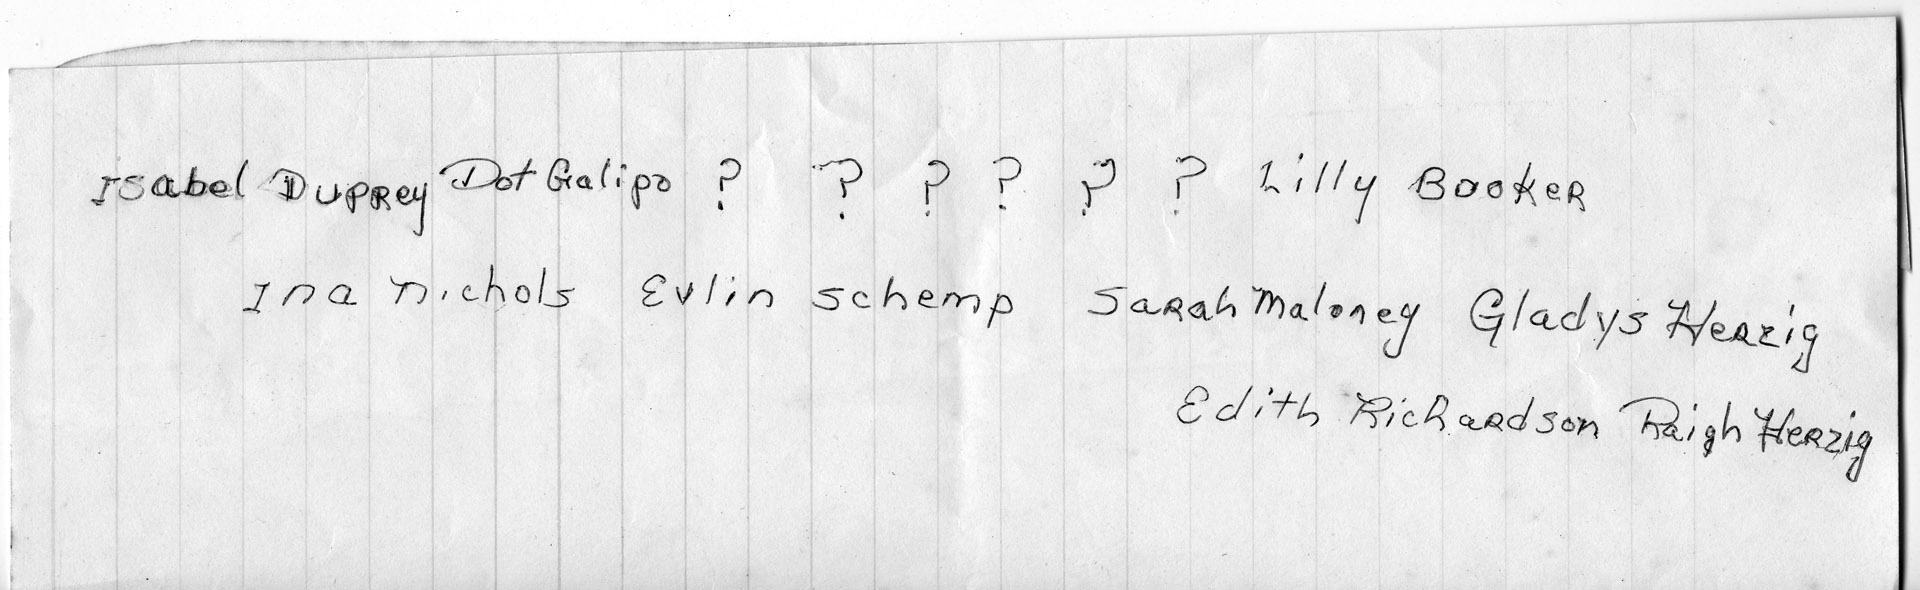 Isabel Duprey Dot Galipo ? ? ? ? ? ? Lilly Booker
Ina Nichols Evlin Schemp Sarah Maloney Gladys Herzig
Edith Richardson Raigh Herzig